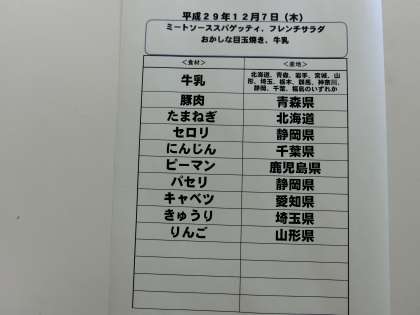 平成29年12月7日（木）
ミートソーススパゲッティ、フレンチサラダ
おかしな目玉焼き、牛乳
＜食材＞ ＜産地＞
牛乳 北海道、青森、岩手、宮城、山
形、埼玉、栃木、群馬、神奈川、
静岡、千葉、福島のいずれか
豚肉 青森県
たまねぎ 北海道
セロリ 静岡県
にんじん 千葉県
ピーマン 鹿児島県
パセリ 静岡県
キャベツ 愛知県
きゅうり 埼玉県
りんご 山形県